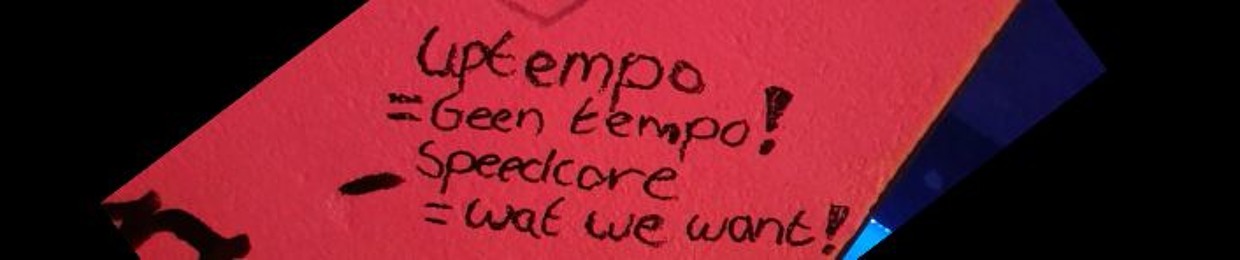 Uptempo
=Geen tempo!
Speedcore
=wat we want!